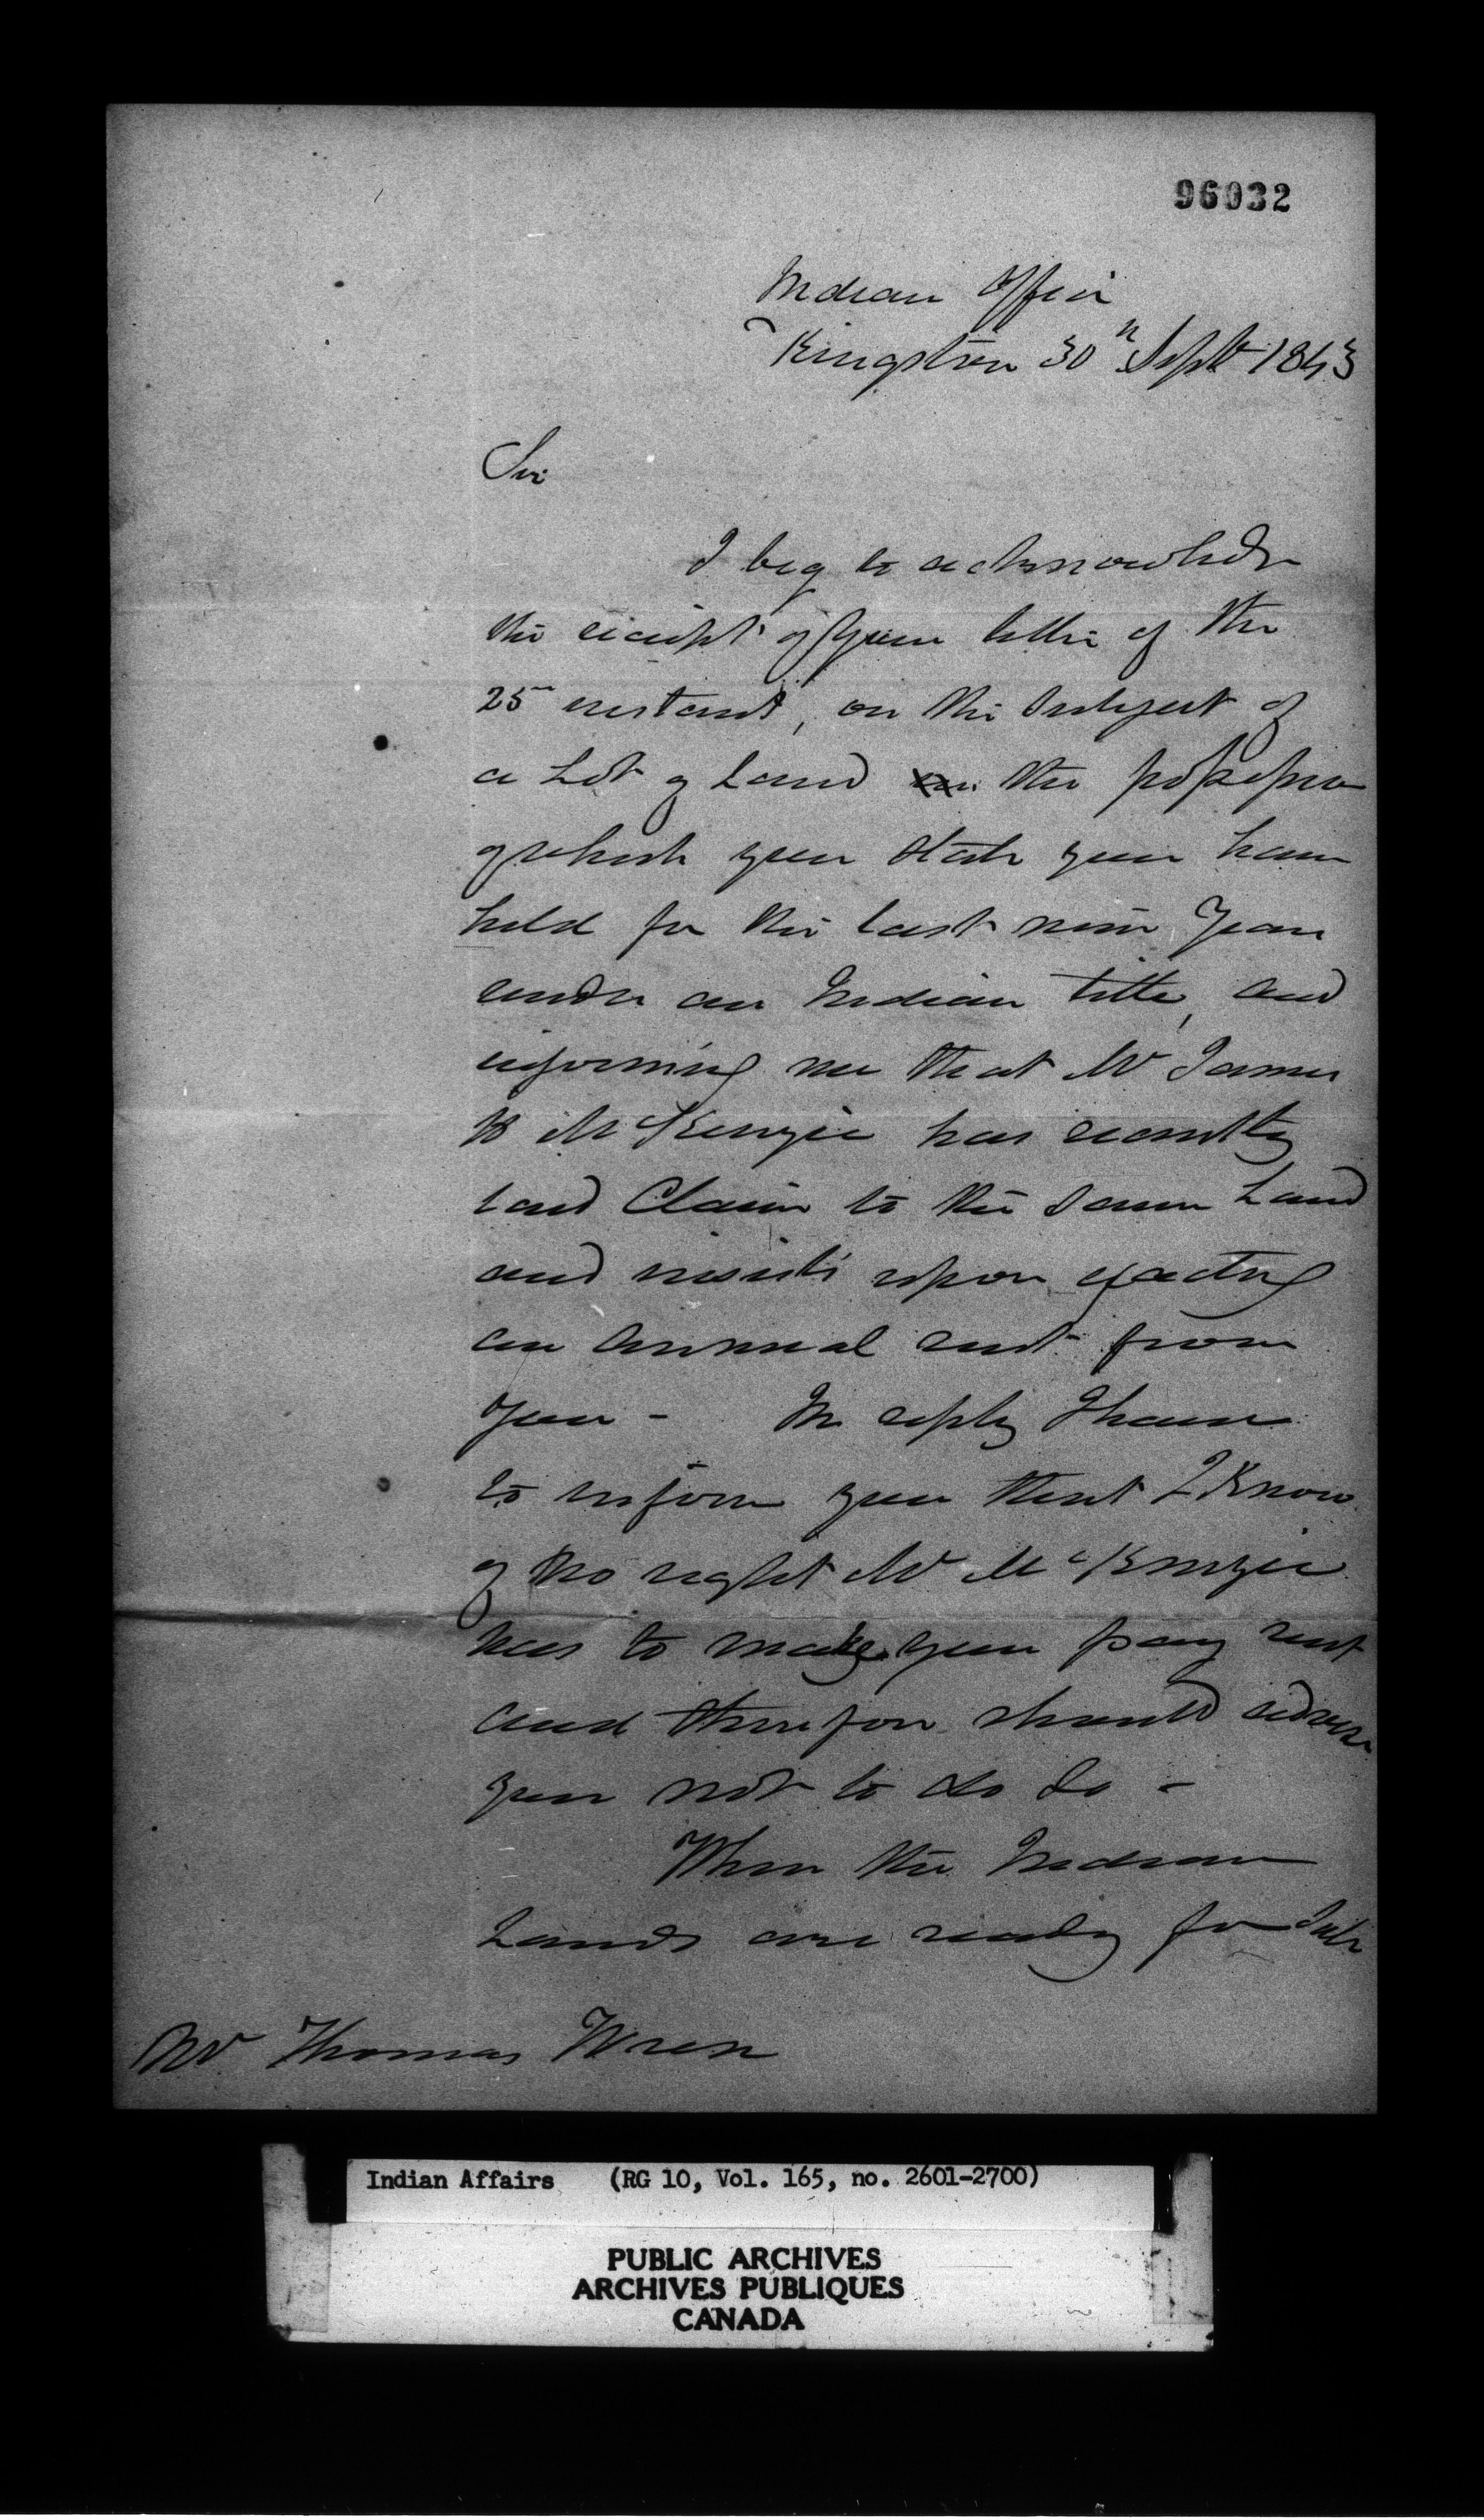 96032
Indian Office
Kingston 30th Sept 1843
Sir
I beg to acknowledge
the receipt of your letter of the
25 instant, on the subject of
a Lot of Land the possession
of which you state you have
held for the last nine Years
under an Indian title, and
informing me that Mr James
McKenzie has recently
laid Claim to the same Land
and insists upon exacting
an annual rent from
you - In reply I have
to inform you that I Know
of no right Mr McKenzie
has to make you pay rent
and therefore should advise
you not to do so -
When the Indian
Lands are ready for Sale
Mr Thomas Wren
Indian Affairs (RG 10, Vol. 165, no. 2601-2700)
PUBLIC ARCHIVES
ARCHIVES PUBLIQUES
CANADA